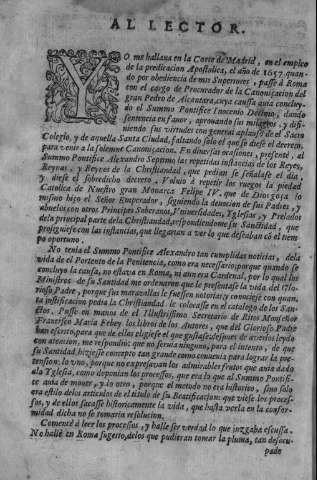 AL LECTOR.
YO me hallaua en la Corte de Madrid, en el empleo
de la predicacion Apostolica, el año de 1657. quan-
do por obediencia de mis Superiores, passè à Roma
con el cargo de Procurador de la Canonizacion del
gran Pedro de Alcantara, cuya causa auia concluy-
do el Summo Pontifice Inocencio Dezimo, dando
sentencia en fauor, aprouando sus milagros, y difi-
niendo sus virtudes con general aplauso de el Sacro
Colegio, y de aquella Santa Ciudad, faltando solo el que se diesse el decreto,
para venir à la solemne Canonizacion. En diuersas ocasiones, presentè al
Summo Pontifice Alexandro Septimo las repetidas instancias de los Reyes,
Reynas, y Reynos de la Christiandad, que pedian se señalasse el dia,
y diesse el sobredicho decreto, Voluiò à repetir los ruegos la piedad
Catolica de Nuestro gran Monarca Felipe IV. que de Dios goza lo
mismo hizo el Señor Emperador, siguiendo la deuocion de sus Padres, y
abuelos con otros Principes Soberanos, Vniuersidades, Yglesias, y Prelados
de la principal parte de la Christiandad, respondiendome su Santidad, que
prosiguiesse con las instancias, que llegarian a ver lo que deseaban cō el tiem-
po oportuno.
No tenia el Summo Pontifice Alexandro tan cumplidas noticias, de la
vida de el Portento de la Penitencia, como era necessario; porque quando se
concluyò la causa, no estava en Roma, ni aun era Cardenal, por lo qual los
Ministros de su Santidad me ordenaron que le presentasse la vida del Glo-
rioso Padre, porque sus marauillas le fuessen notorias y conociesse con quan-
ta justificacion pedia la Christiandad le colocasse en el catalogo de los San-
ctos. Pusse en manos de el Illustrissimo Secretario de Ritos Monseñor
Francisco Maria Febey los libros de los Autores, que del Glorioso Padre
han escrito, para que de ellos eligiesse el que gustasse; despues de auerlos leydo
con atencion, me respondiò; que no seruia ninguno, para el intento, de que
su Santidad, hiziesse concepto tan grande como conuenia para lograr la pre-
tension; lo vno, porque no expressavan los admirables frutos que auia dado
a la Yglesia, como deponian los processos, que era lo que al Summo Pontifi-
ce auia de mouer, y lo otro, porque el metodo no era historico, sino solo
era estilo de los articulos de el titulo de su Beatificacion: que viesse los proces-
sos, y de ellos sacasse historicamente la vida, que hasta verla en la confor-
midad dicha no se tomaria resolucion.
Comencè a leer los processos, y hallè ser verdad lo que juzgaba escussa.
No hallè en Roma sugeto, de los que pudieran tomar la pluma, tan desocu-
pado